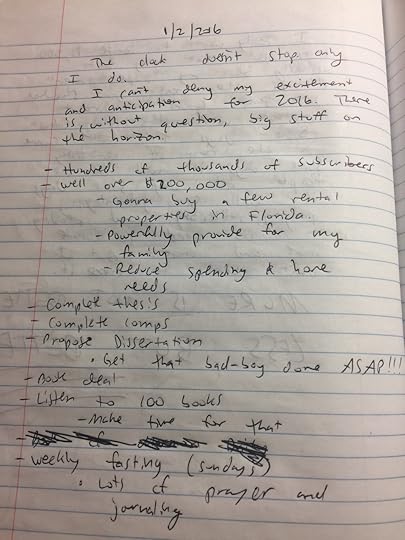 1/2/2016
The clock doesn't stop only
I do.
I can't deny my excitement
and anticipation for 2016. There
is, without question, big stuff on
the horizon.
- Hundreds of thousands of subscribers
- Well over $200,000
- Gonna buy a few rental
properties in Florida.
- Powerfully provide for my
family
- Reduce spending & hone
needs
- Complete thesis
- Complete comps
- Propose Dissertation
• Get that bad-boy done ASAP!!!
- Book deal
- Listen to 100 books
- Make time for that
- weekly fasting (sundays)
• Lots of prayer and
journaling